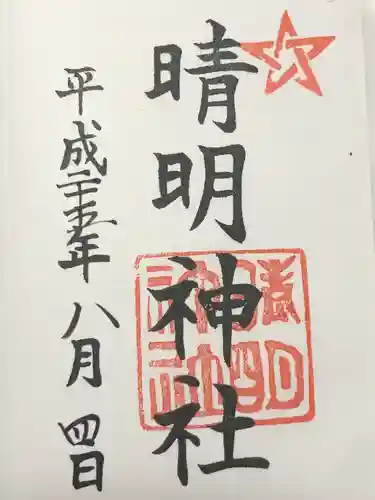 晴明神社
平成二十五年八月四日
晴明
神社